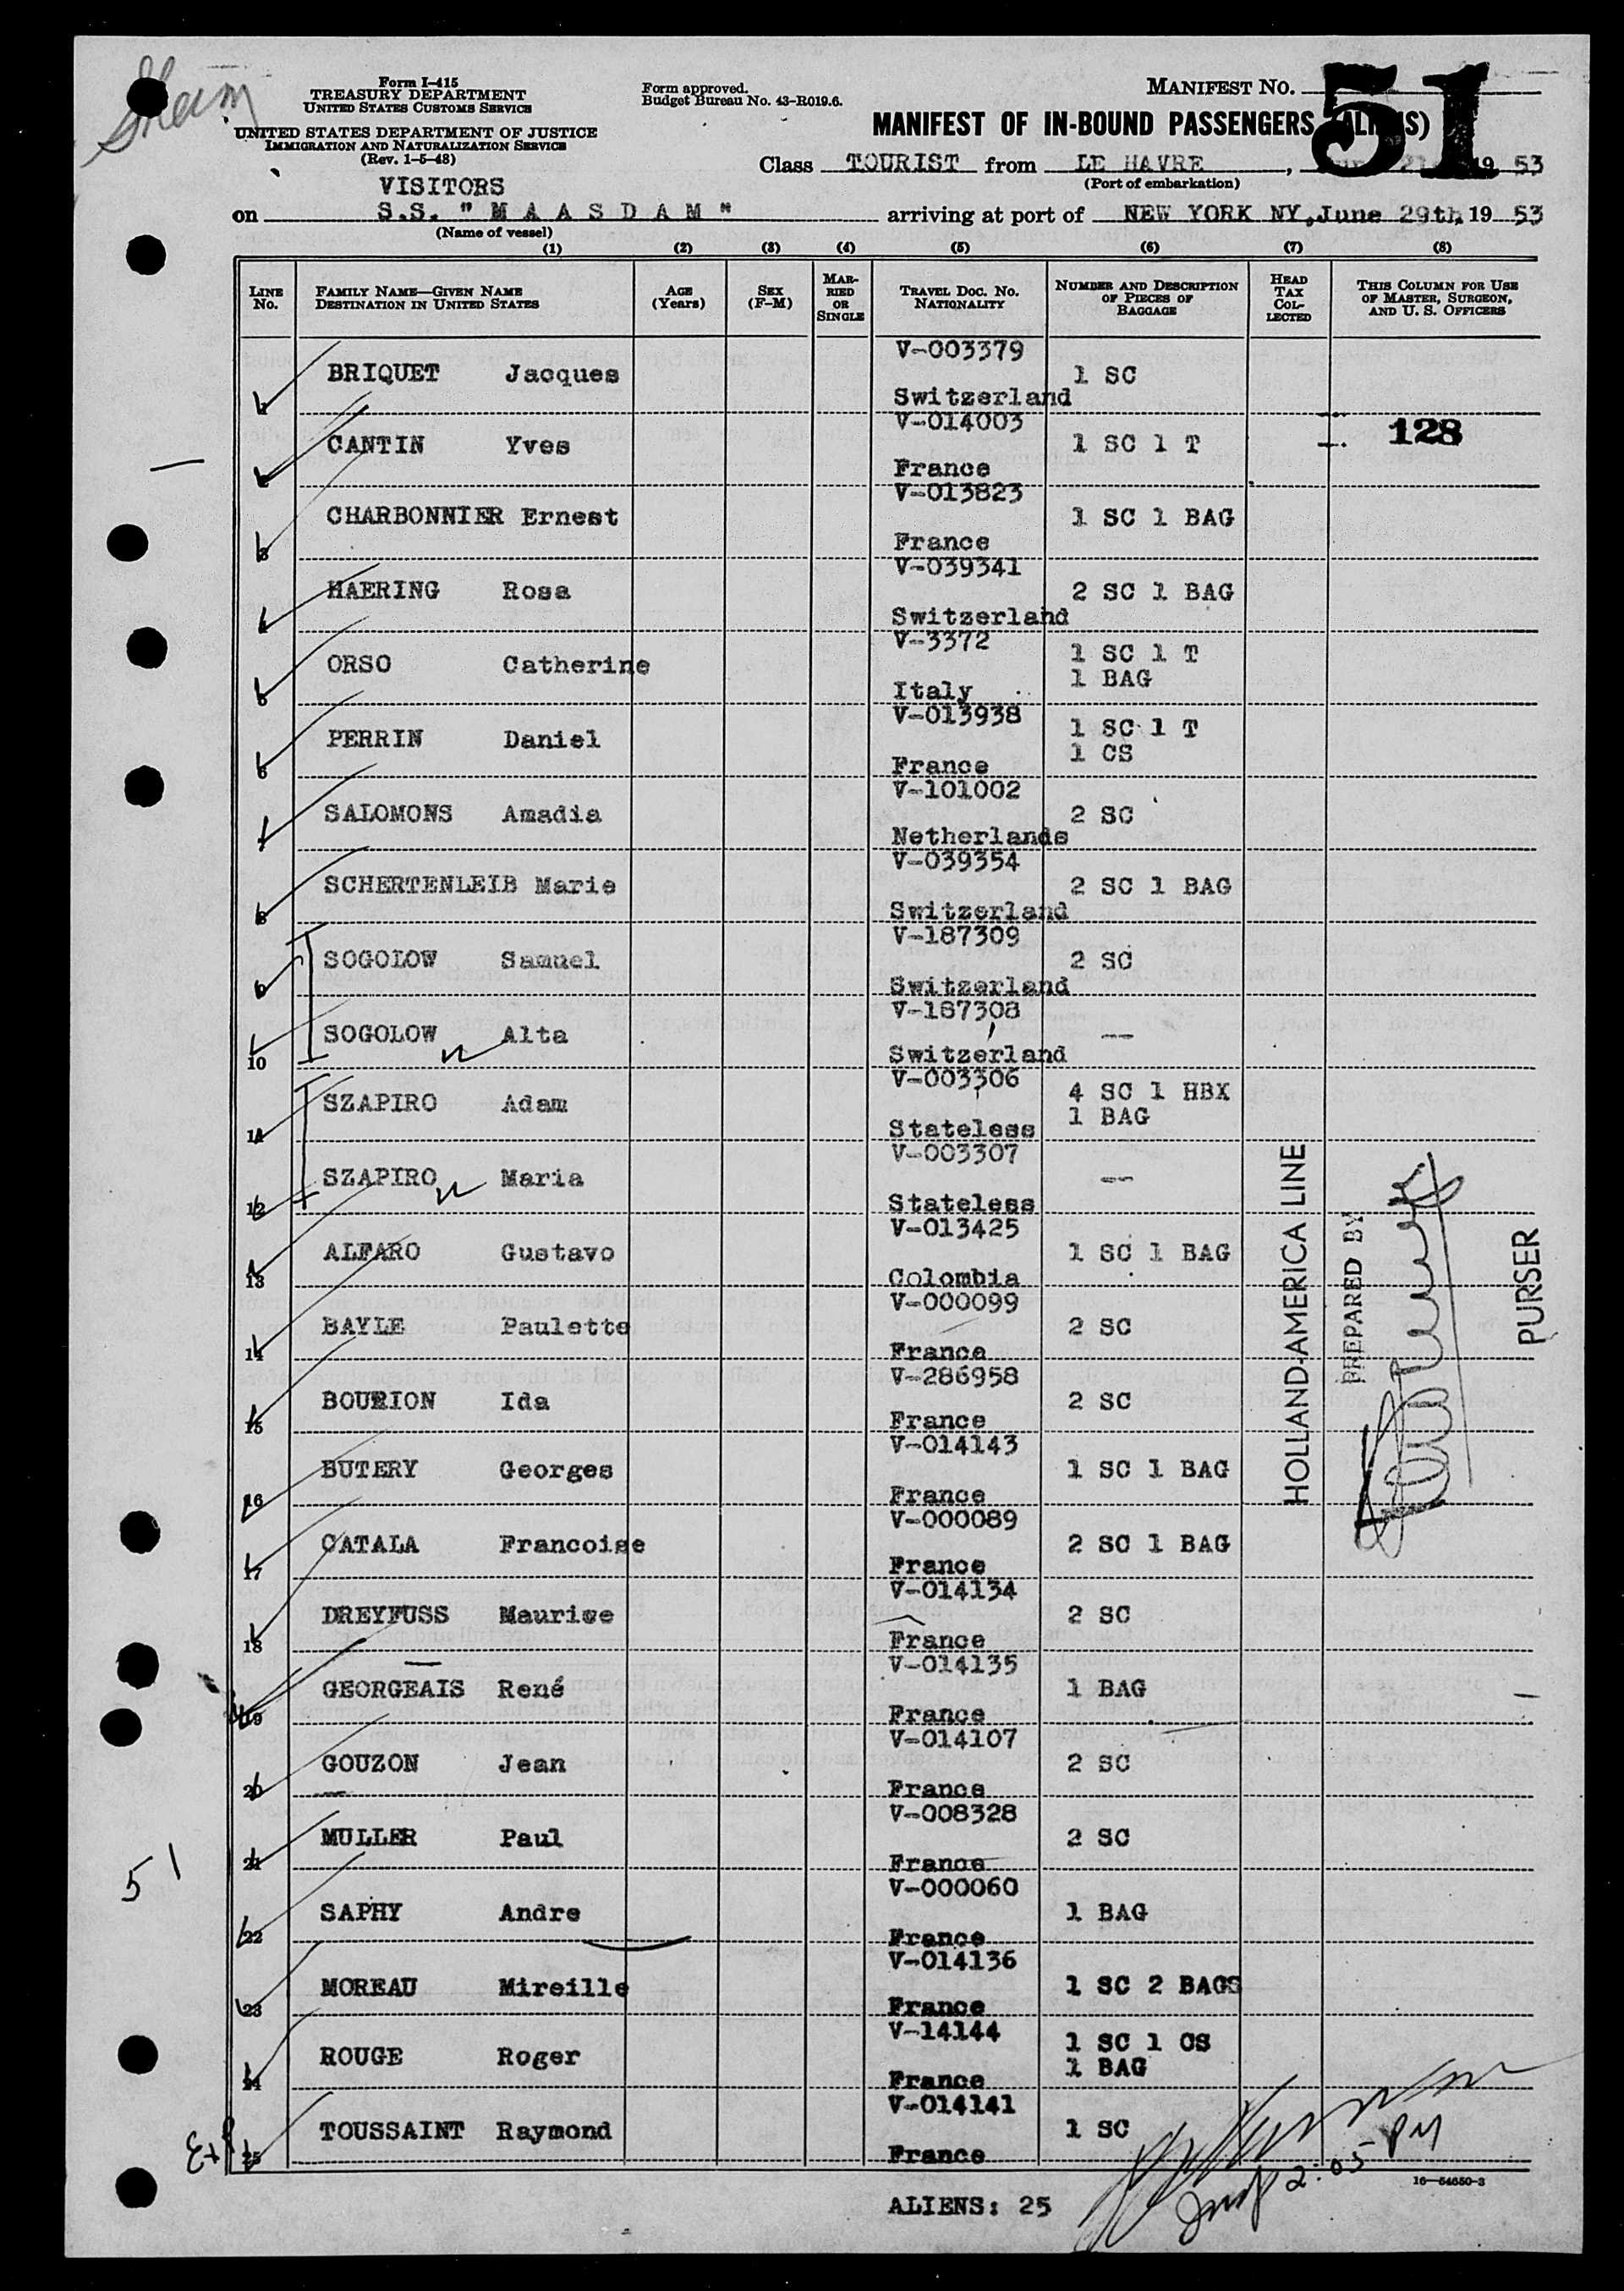 Form I-415
TREASURY DEPARTMENT
UNITED STATES CUSTOMS SERVICE
UNITED STATES DEPARTMENT OF JUSTICE
IMMIGRATION AND NATURALIZATION SERVICE
(Rev. 1-5-48)
Form approved.
Budget Bureau No. 43-R019.6.
MANIFEST NO. 51
MANIFEST OF IN-BOUND PASSENGERS (ALIENS)
Class TOURIST from LE HAVRE, 19 53
(Port of embarkation)
VISITORS
on S.S. "MAASDAM" arriving at port of NEW YORK NY, June 29th, 19 53
(Name of vessel)
(1) (2) (3) (4) (5) (6) (7) (8)
LINE No. FAMILY NAME—GIVEN NAME DESTINATION IN UNITED STATES AGE (Years) SEX (F-M) MARRIED OR SINGLE TRAVEL DOC. NO. NATIONALITY NUMBER AND DESCRIPTION OF PIECES OF BAGGAGE HEAD TAX COLLECTED THIS COLUMN FOR USE OF MASTER, SURGEON, AND U. S. OFFICERS
1 BRIQUET Jacques V-003379 Switzerland 1 SC
2 CANTIN Yves V-014003 France 1 SC 1 T 128
3 CHARBONNIER Ernest V-013823 France 1 SC 1 BAG
4 HAERING Rosa V-039341 Switzerland 2 SC 1 BAG
5 ORSO Catherine V-3372 Italy 1 SC 1 T 1 BAG
6 PERRIN Daniel V-013938 France 1 SC 1 T 1 CS
7 SALOMONS Amadia V-101002 Netherlands 2 SC
8 SCHERTENLEIB Marie V-039354 Switzerland 2 SC 1 BAG
9 SOGOLOW Samuel V-187309 Switzerland 2 SC
10 SOGOLOW Alta V-187308 Switzerland --
11 SZAPIRO Adam V-003306 Stateless 4 SC 1 HBX 1 BAG
12 SZAPIRO Maria V-003307 Stateless --
13 ALFARO Gustavo V-013425 Colombia 1 SC 1 BAG
14 BAYLE Paulette V-000099 France 2 SC
15 BOURION Ida V-286958 France 2 SC
16 BUTERY Georges V-014143 France 1 SC 1 BAG
17 CATALA Francoise V-000089 France 2 SC 1 BAG
18 DREYFUSS Maurice V-014134 France 2 SC
19 GEORGEAIS René V-014135 France 1 BAG
20 GOUZON Jean V-014107 France 2 SC
21 MULLER Paul V-008328 France 2 SC
22 SAPHY Andre V-000060 France 1 BAG
23 MOREAU Mireille V-014136 France 1 SC 2 BAGS
24 ROUGE Roger V-14144 France 1 SC 1 CS 1 BAG
25 TOUSSAINT Raymond V-014141 France 1 SC
HOLLAND-AMERICA LINE
PREPARED BY
PURSER
51
2:05 PM
16—54650-3
ALIENS: 25